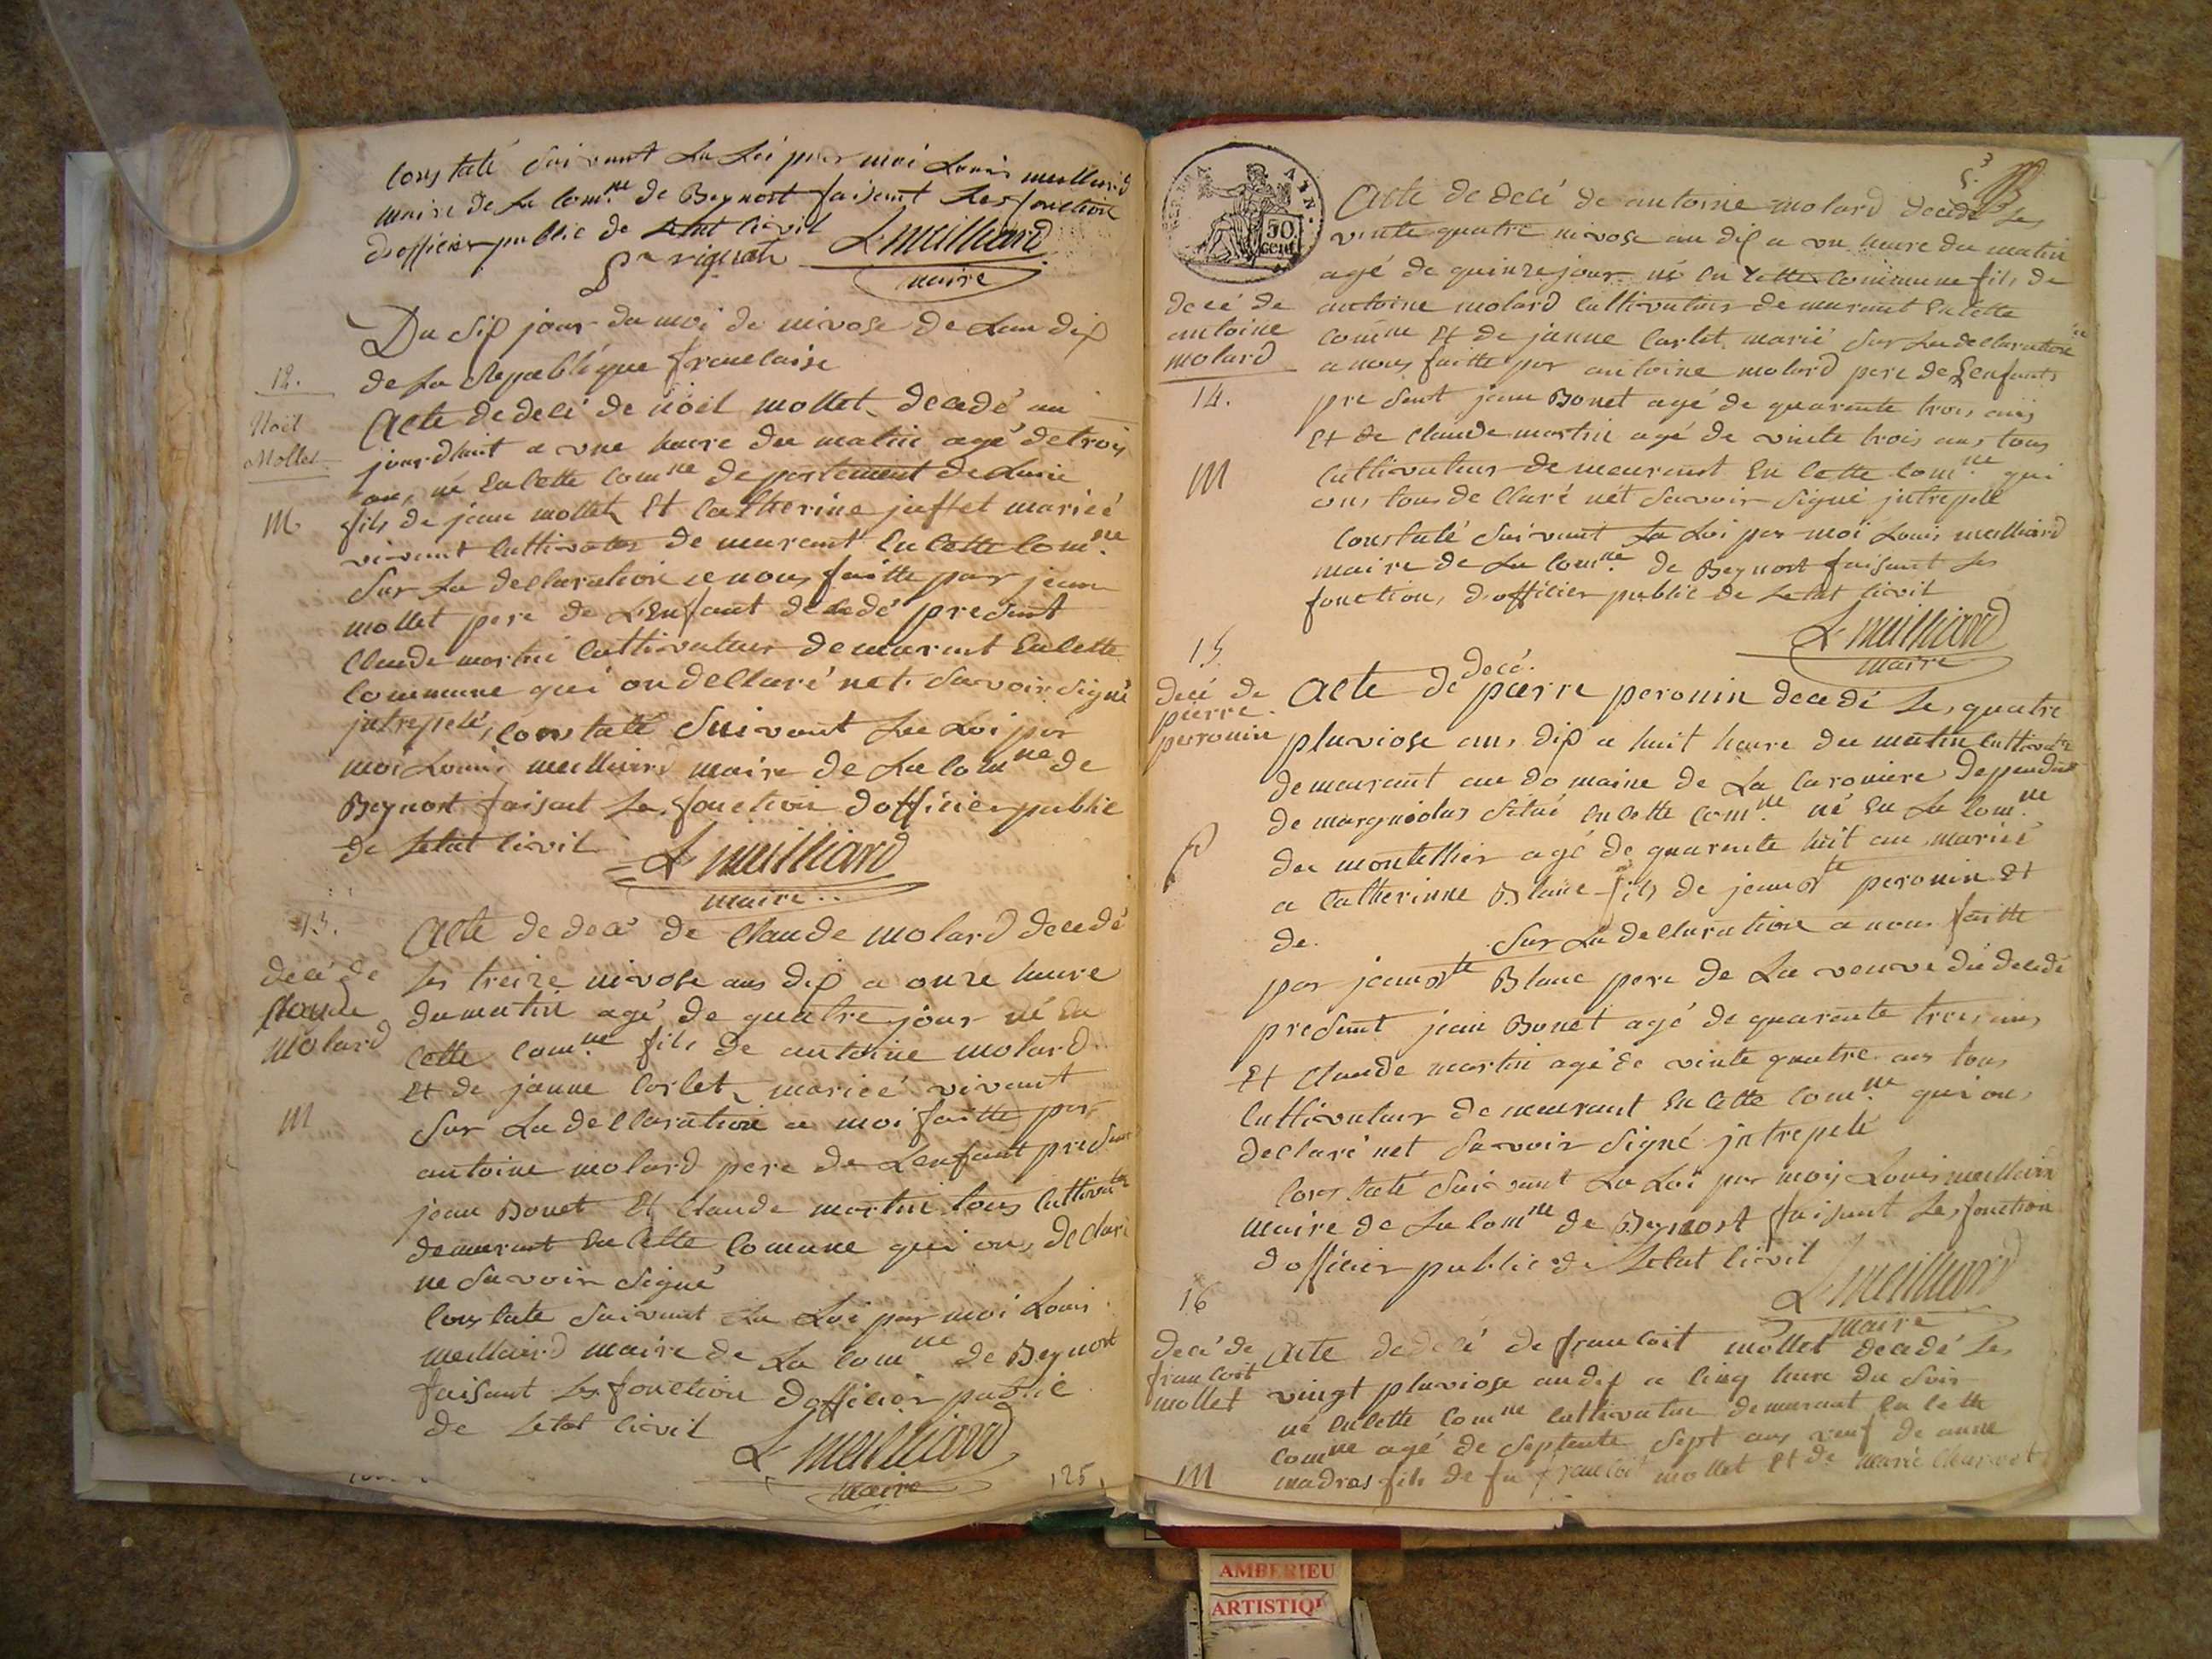 Constaté suivant La Loi par moi Louis meilliard
maire de La com.ne de Beynost faisant Les fonction
dofficier public de Letat Civil
L meilliard
maire
Du dix jour du moi de nivose de Lan dix
de La Republique francaise
12.
Noël
Mollet
M
Acte de decé de noël mollet decedé au
jourdhuit a une heure du matin agé de trois
an, né En Cette Com.ne departement de Lain
fils de jean mollet Et Catherine juffet mariéé
vivant Cultivateur demeurant En Cette Com.ne
Sur La declaration a nous faitte par jean
mollet pere de L'Enfant decedé present
Claude martin Cultivateur demeurant En Cette
Commune qui on declaré net Savoir Signé
jntrepelé, Constaté Suivant La Loi par
moi Louis meilliard maire de La Com.ne de
Beynost faisant Les fonction dofficier public
de Letat Civil
L meilliard
maire
13.
decé de
Claude
molard
M
Acte de decé de Claude molard decedé
Les treize nivose ans dix a onze heure
du matin agé de quatre jour né En
Cette Com.ne fils de antoine molard
Et de janne Carlet mariéé vivant
Sur La declaration a moi faitte par
antoine molard pere de Lenfant present
jean Bonet Et Claude martin tous Cultivateur
demeurant En Cette Comune qui on, declaré
ne Savoir Signé
Constaté Suivant La Loi par moi Louis
meilliard maire de La Com.ne de Beynost
faisant Les fonction dofficier public
de Letat Civil
L meilliard
maire
125
50
Cent.
decé de
antoine
molard
14.
M
Acte de decé de antoine molard decedé Les
vinte quatre nivose an dix a une heure du matin
agé de quinze jour né En Cette Commune fils de
antoine molard Cultivateur demeurant En Cette
Com.ne Et de janne Carlet marié Sur La declaration
a nous faitte par antoine molard pere de Lenfant
present jean Bonet agé de quarente trois ans
Et de Claude martin agé de vinte trois ans tous
Cultivateur demeurant En Cette Com.ne qui
ons tous declaré nét Savoir Signé jntrepelé
Constaté Suivant La Loi par moi Louis meilliard
maire de La Com.ne de Beynost faisant Les
fonction, dofficier public de Letat Civil
L meilliard
maire
15
decé de
pierre
peronin
P
decé.
Acte de pierre peronin decedé Les, quatre
pluviose ans, dix a huit heure du matin Cultivateur
demeurant au domaine de La Caroniere dependant
de margnolas situé En Cette Com.ne né En La Com.ne
du montellier agé de quarente huit an marié
a Catherinne Blanc fils de jean Bte peronin Et
de Sur La declaration a nous faitte
par jean Bte Blanc pere de La veuve du decedé
present jean Bonet agé de quarente trois ans,
Et Claude martin agé de vinte quatre ans tous
Cultivateur demeurant En Cette Com.ne qui on,
declaré net Savoir Signé jntrepelé
Constaté Suivant La Loi par moy Louis meilliard
maire de La Com.ne de Beynost faisant Les fonction
dofficier public de Letat Civil
L meilliard
maire
16
decé de
francoit
mollet
M
Acte de decé de francoit mollet decedé Les,
vingt pluviose an dix a Cinq heure du Soir
né En Cette Com.ne Cultivateur demeurant En Cette
Com.ne agé de Septente Sept ans veuf de anne
madras fils de fu francoit mollet Et de marie
AMBERIEU
ARTISTIQU